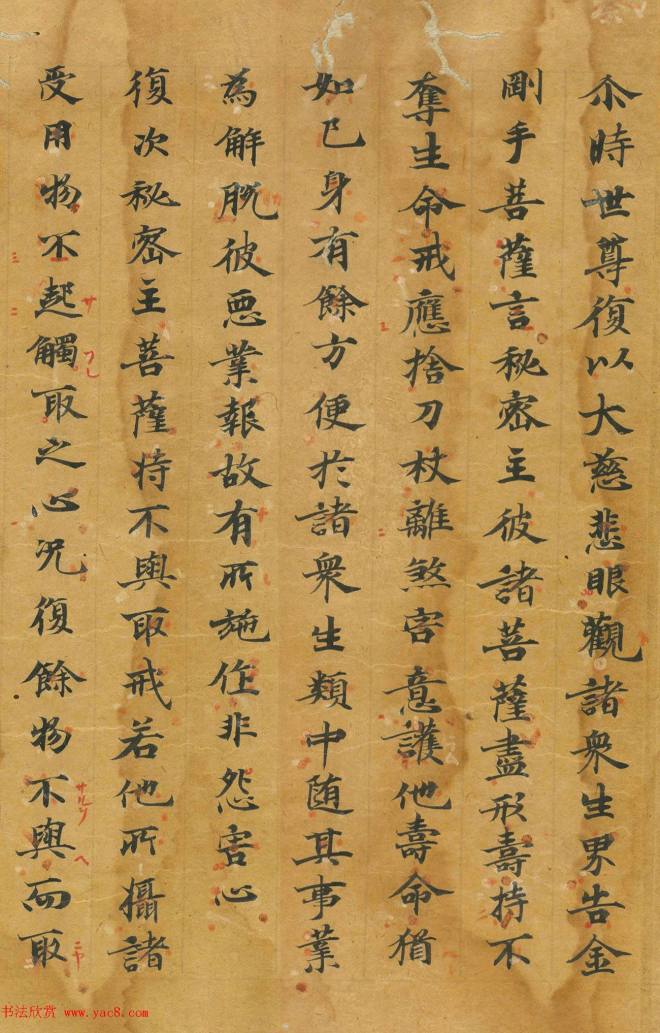 尒時世尊復以大慈悲眼觀諸衆生界告金
剛手菩薩言秘密主彼諸菩薩盡形壽持不
奪生命戒應捨刀杖離煞害意護他壽命猶
如己身有餘方便於諸衆生類中随其事業
為解脫彼惡業報故有所施作非怨害心
復次秘密主菩薩持不與取戒若他所攝諸
受用物不起觸取之心况復餘物不與而取
书法欣赏 www.yac8.com